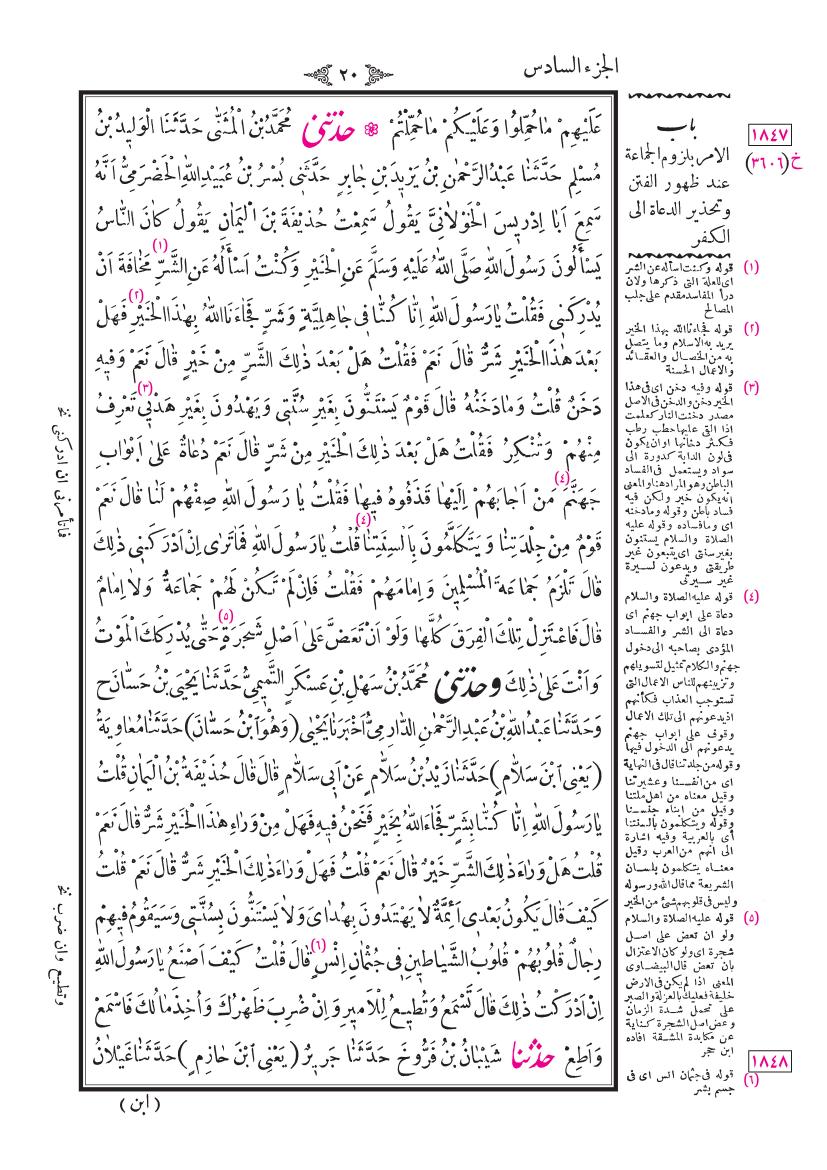 الجزء السادس
٢٠
عَلَيْهِمْ مَا حُمِّلُوا وَعَلَيْكُمْ مَا حُمِّلْتُمْ ❁ حَدَّثَنِي مُحَمَّدُ بْنُ الْمُثَنَّى حَدَّثَنَا الْوَلِيدُ بْنُ
مُسْلِمٍ حَدَّثَنَا عَبْدُ الرَّحْمٰنِ بْنُ يَزِيدَ بْنِ جَابِرٍ حَدَّثَنِي بُسْرُ بْنُ عُبَيْدِ اللّٰهِ الْحَضْرَمِيُّ اَنَّهُ
سَمِعَ اَبَا اِدْرِيسَ الْخَوْلَانِيَّ يَقُولُ سَمِعْتُ حُذَيْفَةَ بْنَ الْيَمَانِ يَقُولُ كَانَ النَّاسُ
يَسْأَلُونَ رَسُولَ اللّٰهِ صَلَّى اللّٰهُ عَلَيْهِ وَسَلَّمَ عَنِ الْخَيْرِ وَكُنْتُ اَسْأَلُهُ عَنِ الشَّرِّ (١) مَخَافَةَ اَنْ
يُدْرِكَنِي فَقُلْتُ يَا رَسُولَ اللّٰهِ اِنَّا كُنَّا فِي جَاهِلِيَّةٍ وَشَرٍّ فَجَاءَنَا اللّٰهُ بِهٰذَا الْخَيْرِ (٢) فَهَلْ
بَعْدَ هٰذَا الْخَيْرِ شَرٌّ قَالَ نَعَمْ فَقُلْتُ هَلْ بَعْدَ ذٰلِكَ الشَّرِّ مِنْ خَيْرٍ قَالَ نَعَمْ وَفِيهِ
دَخَنٌ قُلْتُ وَمَا دَخَنُهُ قَالَ قَوْمٌ يَسْتَنُّونَ بِغَيْرِ سُنَّتِي وَيَهْدُونَ بِغَيْرِ هَدْيِي (٣) تَعْرِفُ
مِنْهُمْ وَتُنْكِرُ فَقُلْتُ هَلْ بَعْدَ ذٰلِكَ الْخَيْرِ مِنْ شَرٍّ قَالَ نَعَمْ دُعَاةٌ عَلَى اَبْوَابِ
جَهَنَّمَ (٤) مَنْ اَجَابَهُمْ اِلَيْهَا قَذَفُوهُ فِيهَا فَقُلْتُ يَا رَسُولَ اللّٰهِ صِفْهُمْ لَنَا قَالَ نَعَمْ
قَوْمٌ مِنْ جِلْدَتِنَا وَيَتَكَلَّمُونَ بِاَلْسِنَتِنَا (٤) قُلْتُ يَا رَسُولَ اللّٰهِ فَمَا تَرَى اِنْ اَدْرَكَنِي ذٰلِكَ
قَالَ تَلْزَمُ جَمَاعَةَ الْمُسْلِمِينَ وَاِمَامَهُمْ فَقُلْتُ فَاِنْ لَمْ تَكُنْ لَهُمْ جَمَاعَةٌ وَلَا اِمَامٌ
قَالَ فَاعْتَزِلْ تِلْكَ الْفِرَقَ كُلَّهَا وَلَوْ اَنْ تَعَضَّ عَلَى اَصْلِ شَجَرَةٍ (٥) حَتَّى يُدْرِكَكَ الْمَوْتُ
وَاَنْتَ عَلَى ذٰلِكَ وَحَدَّثَنِي مُحَمَّدُ بْنُ سَهْلِ بْنِ عَسْكَرٍ التَّمِيمِيُّ حَدَّثَنَا يَحْيَى بْنُ حَسَّانَ ح
وَحَدَّثَنَا عَبْدُ اللّٰهِ بْنُ عَبْدِ الرَّحْمٰنِ الدَّارِمِيُّ اَخْبَرَنَا يَحْيَى (وَهُوَ ابْنُ حَسَّانَ) حَدَّثَنَا مُعَاوِيَةُ
(يَعْنِي ابْنَ سَلَّامٍ) حَدَّثَنَا زَيْدُ بْنُ سَلَّامٍ عَنْ اَبِي سَلَّامٍ قَالَ قَالَ حُذَيْفَةُ بْنُ الْيَمَانِ قُلْتُ
يَا رَسُولَ اللّٰهِ اِنَّا كُنَّا بِشَرٍّ فَجَاءَ اللّٰهُ بِخَيْرٍ فَنَحْنُ فِيهِ فَهَلْ مِنْ وَرَاءِ هٰذَا الْخَيْرِ شَرٌّ قَالَ نَعَمْ
قُلْتُ هَلْ وَرَاءَ ذٰلِكَ الشَّرِّ خَيْرٌ قَالَ نَعَمْ قُلْتُ فَهَلْ وَرَاءَ ذٰلِكَ الْخَيْرِ شَرٌّ قَالَ نَعَمْ قُلْتُ
كَيْفَ قَالَ يَكُونُ بَعْدِي اَئِمَّةٌ لَا يَهْتَدُونَ بِهُدَايَ وَلَا يَسْتَنُّونَ بِسُنَّتِي وَسَيَقُومُ فِيهِمْ
رِجَالٌ قُلُوبُهُمْ قُلُوبُ الشَّيَاطِينِ فِي جُثْمَانِ اِنْسٍ (٦) قَالَ قُلْتُ كَيْفَ اَصْنَعُ يَا رَسُولَ اللّٰهِ
اِنْ اَدْرَكْتُ ذٰلِكَ قَالَ تَسْمَعُ وَتُطِيعُ لِلْاَمِيرِ وَاِنْ ضُرِبَ ظَهْرُكَ وَاُخِذَ مَالُكَ فَاسْمَعْ
وَاَطِعْ حَدَّثَنَا شَيْبَانُ بْنُ فَرُّوخَ حَدَّثَنَا جَرِيرٌ (يَعْنِي ابْنَ حَازِمٍ) حَدَّثَنَا غَيْلَانُ
(ابن)
١٨٤٧
خ(٣٦٠٦)
باب
الامر بلزوم الجماعة
عند ظهور الفتن
وتحذير الدعاة الى
الكفر
(١) قوله وكنت اسأله عن الشر
اى للعلة التى ذكرها ولان
درأ المفاسد مقدم على جلب
المصالح
(٢) قوله فجاءنا الله بهذا الخير
يريد به الاسلام وما يتصل
به من الخصال والعقائد
والاعمال الحسنة
(٣) قوله وفيه دخن اى فى هذا
الخير دخن والدخن فى الاصل
مصدر دخنت النار كعلمت
اذا القى عليها حطب رطب
فكثر دخانها او ان يكون
فى لون الدابة كدورة الى
سواد ويستعمل فى الفساد
الباطن وهو المراد هنا والمعنى
انه يكون خير ولكن فيه
فساد باطن وقوله وما دخنه
اى وما فساده وقوله عليه
الصلاة والسلام يستنون
بغير سنتى اى يتبعون غير
طريقتى ويدعون لسيرة
غير سيرتى
(٤) قوله عليه الصلاة والسلام
دعاة على ابواب جهنم اى
دعاة الى الشر والفساد
المؤدى بصاحبه الى دخول
جهنم والكلام تمثيل لتسويلهم
وتزيينهم للناس الاعمال التى
تستوجب العذاب فكأنهم
اذ يدعونهم الى تلك الاعمال
وقوف على ابواب جهنم
يدعونهم الى الدخول فيها
وقوله من جلدتنا قال فى النهاية
اى من انفسنا وعشيرتنا
وقيل معناه من اهل ملتنا
وقيل من ابناء جنسنا
وقوله ويتكلمون بالسنتنا
أى بالعربية وفيه اشارة
الى انهم من العرب وقيل
معناه يتكلمون بلسان
الشريعة مما قال الله ورسوله
وليس فى قلوبهم شئ من الخير
(٥) قوله عليه الصلاة والسلام
ولو ان تعض على اصل
شجرة اى ولو كان الاعتزال
بان تعض قال البيضاوى
المعنى اذا لم يكن فى الارض
خليفة فعليك بالعزلة والصبر
على تحمل شدة الزمان
وعض اصل الشجرة كناية
عن مكابدة المشقة افاده
ابن حجر
١٨٤٨
(٦) قوله فى جثمان انس اى فى
جسم بشر
فما تأمرنى ان ادركنى نخ
وتطيع وان ضرب نخ